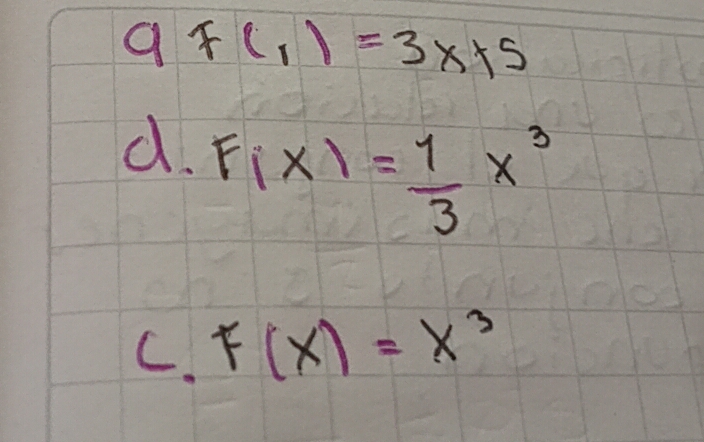 a F(,) = 3x+5
d. F(x) = 1/3 x³
c. F(x) = x³